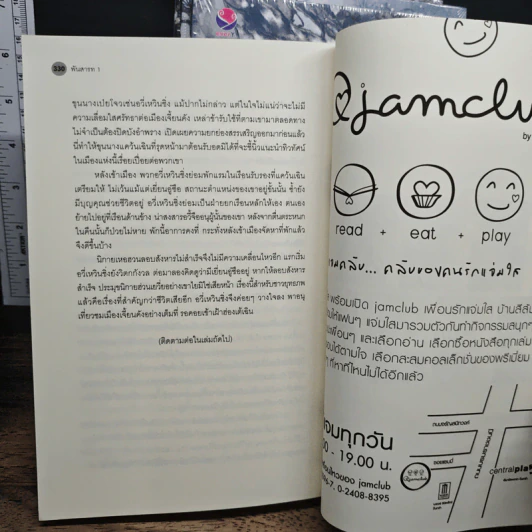 330 พันสารท 1
ขุนนางเปยโจวเช่นอวี๋เหวินซิ่ง แม้ปากไม่กล่าว แต่ในใจไม่แน่ว่าจะไม่มี
ความเลื่อมใสศรัทธาต่อเมืองเจี้ยนคัง เหล่าข้ารับใช้ที่ตามเขามาตลอดทาง
ไม่จำเป็นต้องปิดบังอำพราง เปิดเผยความยกย่องสรรเสริญออกมาก่อนแล้ว
นี่ทำให้ขุนนางแคว้นเฉินที่รุดหน้ามาต้อนรับอดมิได้ที่จะชี้นิ้วแนะนำทิวทัศน์
ในเมืองแห่งนี้เรื่อยเปื่อยต่อพวกเขา
หลังเข้าเมือง พวกอวี๋เหวินซิ่งย่อมพักแรมในเรือนรับรองที่แคว้นเฉิน
เตรียมให้ ไม่เว้นแม้แต่เยี่ยนอู๋ซือ สถานะตำแหน่งของเขาอยู่ชั้นนั้น ซ้ำยัง
มีบุญคุณช่วยชีวิตอยู่ อวี๋เหวินซิ่งย่อมเป็นฝ่ายยกเรือนหลักให้เอง ตนเอง
ย้ายไปอยู่ที่เรือนด้านข้าง
ในคืนนั้นก็ป่วยไม่หาย พักนี้อาการคงที่ กระทั่งหลังเข้าเมืองจัดหาที่พักแล้ว
จึงดีขึ้นบ้าง
นิกายเหอฮวนลอบสังหารไม่สำเร็จจึงไม่มีความเคลื่อนไหวอีก แรกเริ่ม
อวี๋เหวินซิ่งยังวิตกกังวล ต่อมาลองคิดดูว่ามีเยี่ยนอู๋ซืออยู่ หากให้ลอบสังหาร
สำเร็จ ประมุขนิกายส่วนเยวียอย่างเขาย่อมมิใช่เสียหน้า เรื่องนี้สำหรับชาวยุทธภพ
แล้วคือเรื่องที่สำคัญกว่าชีวิตเสียอีก อวี๋เหวินซิ่งจึงค่อยๆ วางใจลง พาอนุ
เที่ยวชมเมืองเจี้ยนคังอย่างเต็มที่ รอคอยเข้าเฝ้าฮ่องเต้เฉิน
(ติดตามต่อในเล่มถัดไป)
jamclu
by
read + eat + play
มคลับ... คลับของคนรักแจ่มใส
พร้อมเปิด jamclub เพื่อนรักแจ่มใส บ้านสีส้ม
ให้แฟนๆ แจ่มใสมารวมตัวกันทำกิจกรรมสนุกๆ
เพื่อนๆ และเลือกอ่าน เลือกซื้อหนังสือทุกเล่ม
ได้ตามใจ เลือกสะสมคอลเล็กชั่นของพรีเมี่ยม
ๆ ที่หาที่ไหนไม่ได้อีกแล้ว
จอมทุกวัน
- 19.00 น.
ของ jamclub
0-2408-8395
jamclub
centralpla